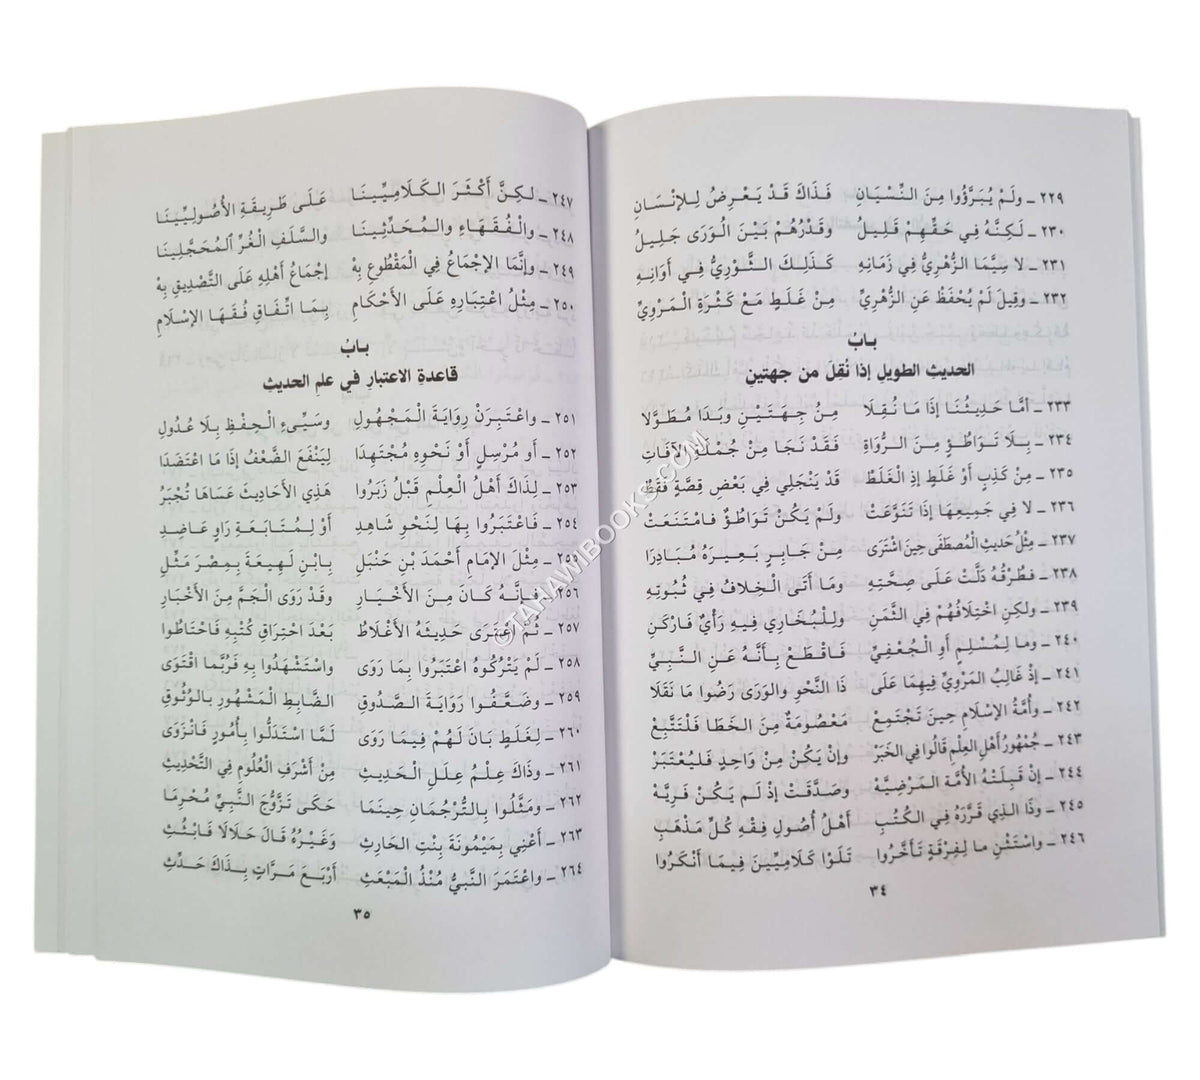 ٢٢٩ ـ ولَمْ يُبَرَّؤُوا مِنَ النِّسْيَانِ فَذَاكَ قَدْ يَعْرِضُ لِلإنْسَانِ
٢٣٠ ـ لَكِنَّهُ فِي حَقِّهِمْ قَلِيلُ وقَدْرُهُمْ بَيْنَ الْوَرَى جَلِيلُ
٢٣١ ـ لا سِيَّمَا الزُّهْرِيُّ فِي زَمَانِهِ كَذَلِكَ الثَّوْرِيُّ فِي أَوَانِهِ
٢٣٢ ـ وقِيلَ لَمْ يُحْفَظْ عَنِ الزُّهْرِيِّ مِنْ غَلَطٍ مَعْ كَثْرَةِ الْمَرْوِيِّ
بابُ
الحديثِ الطويلِ إذا نُقِلَ من جهتينِ
٢٣٣ ـ أمَّا حَدِيثُنَا إذَا مَا نُقِلَا مِنْ جِهَتَيْنِ وبَدَا مُطَوَّلا
٢٣٤ ـ بِلَا تَوَاطُؤٍ مِنَ الرُّوَاةِ فَقَدْ نَجَا مِنْ جُمْلَةِ الآفَاتِ
٢٣٥ ـ مِنْ كَذِبٍ أَوْ غَلَطٍ إذِ الْغَلَطْ قَدْ يَنْجَلِي فِي بَعْضِ قِصَّةٍ فَقَطْ
٢٣٦ ـ لا فِي جَمِيعِهَا إذَا تَنَوَّعَتْ ولَمْ يَكُنْ تَوَاطُؤٌ فامْتَنَعَتْ
٢٣٧ ـ مِثْلُ حَدِيثِ الْمُصطَفَى حِينَ اشْتَرَى مِنْ جَابِرٍ بَعِيرَهُ مُبَادِرَا
٢٣٨ ـ فَطُرْقُهُ دَلَّتْ عَلَى صِحَّتِهِ ومَا أَتَى الْخِلافُ فِي ثُبُوتِهِ
٢٣٩ ـ ولكِنِ اخْتِلافُهُمْ فِي الثَّمَنِ ولِلْبُخَارِي فِيهِ رَأْيٌ فَارْكَنِ
٢٤٠ ـ ومَا لِمُسْلِمٍ أَوِ الْجُعْفِيِّ فَاقْطَعْ بِأَنَّهُ عَنِ النَّبِيِّ
٢٤١ ـ إذْ غَالِبُ المَرْوِيِّ فِيهِمَا عَلَى ذَا النَّحْوِ والوَرَى رَضُوا مَا نَقَلَا
٢٤٢ ـ وأُمَّةُ الإسْلَامِ حِينَ تَجْتَمِعْ مَعْصُومَةٌ مِنَ الخَطَا فَلْتَتَّبِعْ
٢٤٣ ـ جُمْهُورُ أَهْلِ العِلْمِ قَالُوا فِي الخَبَرْ وإنْ يَكُنْ مِنْ وَاحِدٍ فَلْيُعْتَبَرْ
٢٤٤ ـ إنْ قَبِلَتْهُ الأُمَّةُ المَرْضِيَّهْ وصَدَّقَتْ إذْ لَم يَكُنْ فَرِيَّهْ
٢٤٥ ـ وذَا الذِي قَرَّرَهُ فِي الكُتْبِ أَهْلُ أُصُولِ فِقْهِ كُلِّ مَذْهَبِ
٢٤٦ ـ واسْتَثْنِ ما لِفِرْقَةٍ تَأَخَّرُوا تَلَوْا كَلامِيِّينَ فِيمَا أَنْكَرُوا
٣٤
٢٤٧ ـ لـكِنَّ أَكْثَرَ الكَلامِيِّينَا عَلَى طَرِيقَةِ الأُصُولِيِّينَا
٢٤٨ ـ والْفُقَهَاءِ والمُحَدِّثِينَا والسَّلَفِ الْغُرِّ المُحَجَّلِينَا
٢٤٩ ـ وإنَّمَا الإجْمَاعُ فِي الْمَقْطُوعِ بِهْ إجْمَاعُ أَهْلِهِ عَلَى التَّصْدِيقِ بِهْ
٢٥٠ ـ مِثْلُ اعْتِبَارِهِ عَلَى الأَحْكَامِ بِمَا اتِّفَاقِ فُقَهَا الإسْلَامِ
بابُ
قاعدةِ الاعتبارِ في علمِ الحديثِ
٢٥١ ـ واعْتَبِرَنْ رِوَايَةَ الْمَجْهُولِ وسَيِّىءِ الْحِفْظِ بِلَا عُدُولِ
٢٥٢ ـ أو مُرْسِلٍ أَوْ نَحْوِهِ مُجْتَهِدَا لِيَنْفَعَ الضَّعْفُ إذَا مَا اعْتَضَدَا
٢٥٣ ـ لِذَاكَ أَهْلُ الْعِلْمِ قَبْلُ زَبَرُوا هَذِي الأَحَادِيثَ عَسَاهَا تُجْبَرُ
٢٥٤ ـ فَاعْتَبَرُوا بِهَا لنَحْوِ شَاهِدِ أوْ لِمُتَابَعَةِ رَاوٍ عَاضِدِ
٢٥٥ ـ مِثْلَ الإمَامِ أَحْمَدَ بْنِ حَنْبَلِ بِابْنِ لَهِيعَةَ بِمِصْرَ مَثِّلِ
٢٥٦ ـ فـإنَّهُ كَانَ مِنَ الأَخْيَارِ وقَدْ رَوَى الْجَمَّ مِنَ الأَخْبَارِ
٢٥٧ ـ ثُمَّ اعْتَرَى حَدِيثَهُ الأَغْلَاطُ بَعْدَ احْتِرَاقِ كُتْبِهِ فَاحْتَاطُوا
٢٥٨ ـ لَمْ يَتْرُكُوهُ اعْتَبَرُوا بِمَا رَوَى واسْتَشْهَدُوا بِهِ فَرُبَّمَا اقْتَوَى
٢٥٩ ـ وضَعَّفُوا رَوَايَةَ الصَّدُوقِ الضَّابِطِ الْمَشْهُورِ بالوُثُوقِ
٢٦٠ ـ لِغَلَطٍ بَانَ لَهُمْ فِيمَا رَوَى لَمَّا اسْتَدَلُّوا بِأُمُورٍ فَانْزَوَى
٢٦١ ـ وذَاكَ عِلْمُ عِلَلِ الْحَدِيثِ مِنْ أَشْرَفِ الْعُلُومِ فِي التَّحْدِيثِ
٢٦٢ ـ ومَثَّلُوا بِالتُّرْجُمَانِ حِينَمَا حَكَى تَزَوُّجَ النَّبِيِّ مُحْرِمَا
٢٦٣ ـ أَعْنِي بِمَيْمُونَةَ بِنْتِ الحَارِثِ وَغَيْرُهُ قَالَ حَلَالًا فَابْثُثِ
٢٦٤ ـ واعْتَمَرَ النَّبيُّ مُنْذُ الْمَبْعَثِ أَرْبَعَ مَرَّاتٍ بِذَاكَ حَدِّثِ
٣٥
©TAHAWIBOOKS.COM